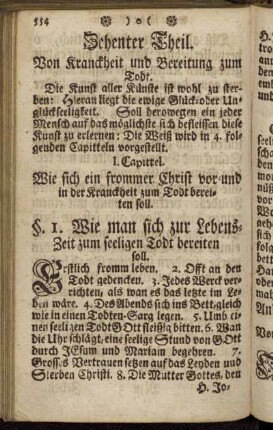 554 ) o (
Zehenter Theil.
Von Kranckheit und Bereitung zum
Todt.
Die Kunst aller Künste ist wohl zu ster-
ben: Hieran liegt die ewige Glück- oder Un-
glückseeligkeit. Soll derowegen ein jeder
Mensch auf das möglichste sich befleissen diese
Kunst zu erlernen: Die Weiß wird in 4. fol-
genden Capitteln vorgestellt.
I. Capittel.
Wie sich ein frommer Christ vor und
in der Kranckheit zum Todt berei-
ten soll.
§. 1. Wie man sich zur Lebens-
Zeit zum seeligen Todt bereiten
soll.
Erstlich fromm leben. 2. Offt an den
Todt gedencken. 3. Jedes Werck ver-
richten, als wan es das letzte im Le-
ben wäre. 4. Des Abends sich ins Bett, gleich
wie in einen Todten-Sarg legen. 5. Umb ei-
nen seeligen Todt GOtt fleißig bitten. 6. Wan
die Uhr schlägt, eine seelige Stund von GOtt
durch JEsum und Mariam begehren. 7.
Grosses Vertrauen setzen auf das Leyden und
Sterben Christi. 8. Die Mutter Gottes, den
H. Jo-